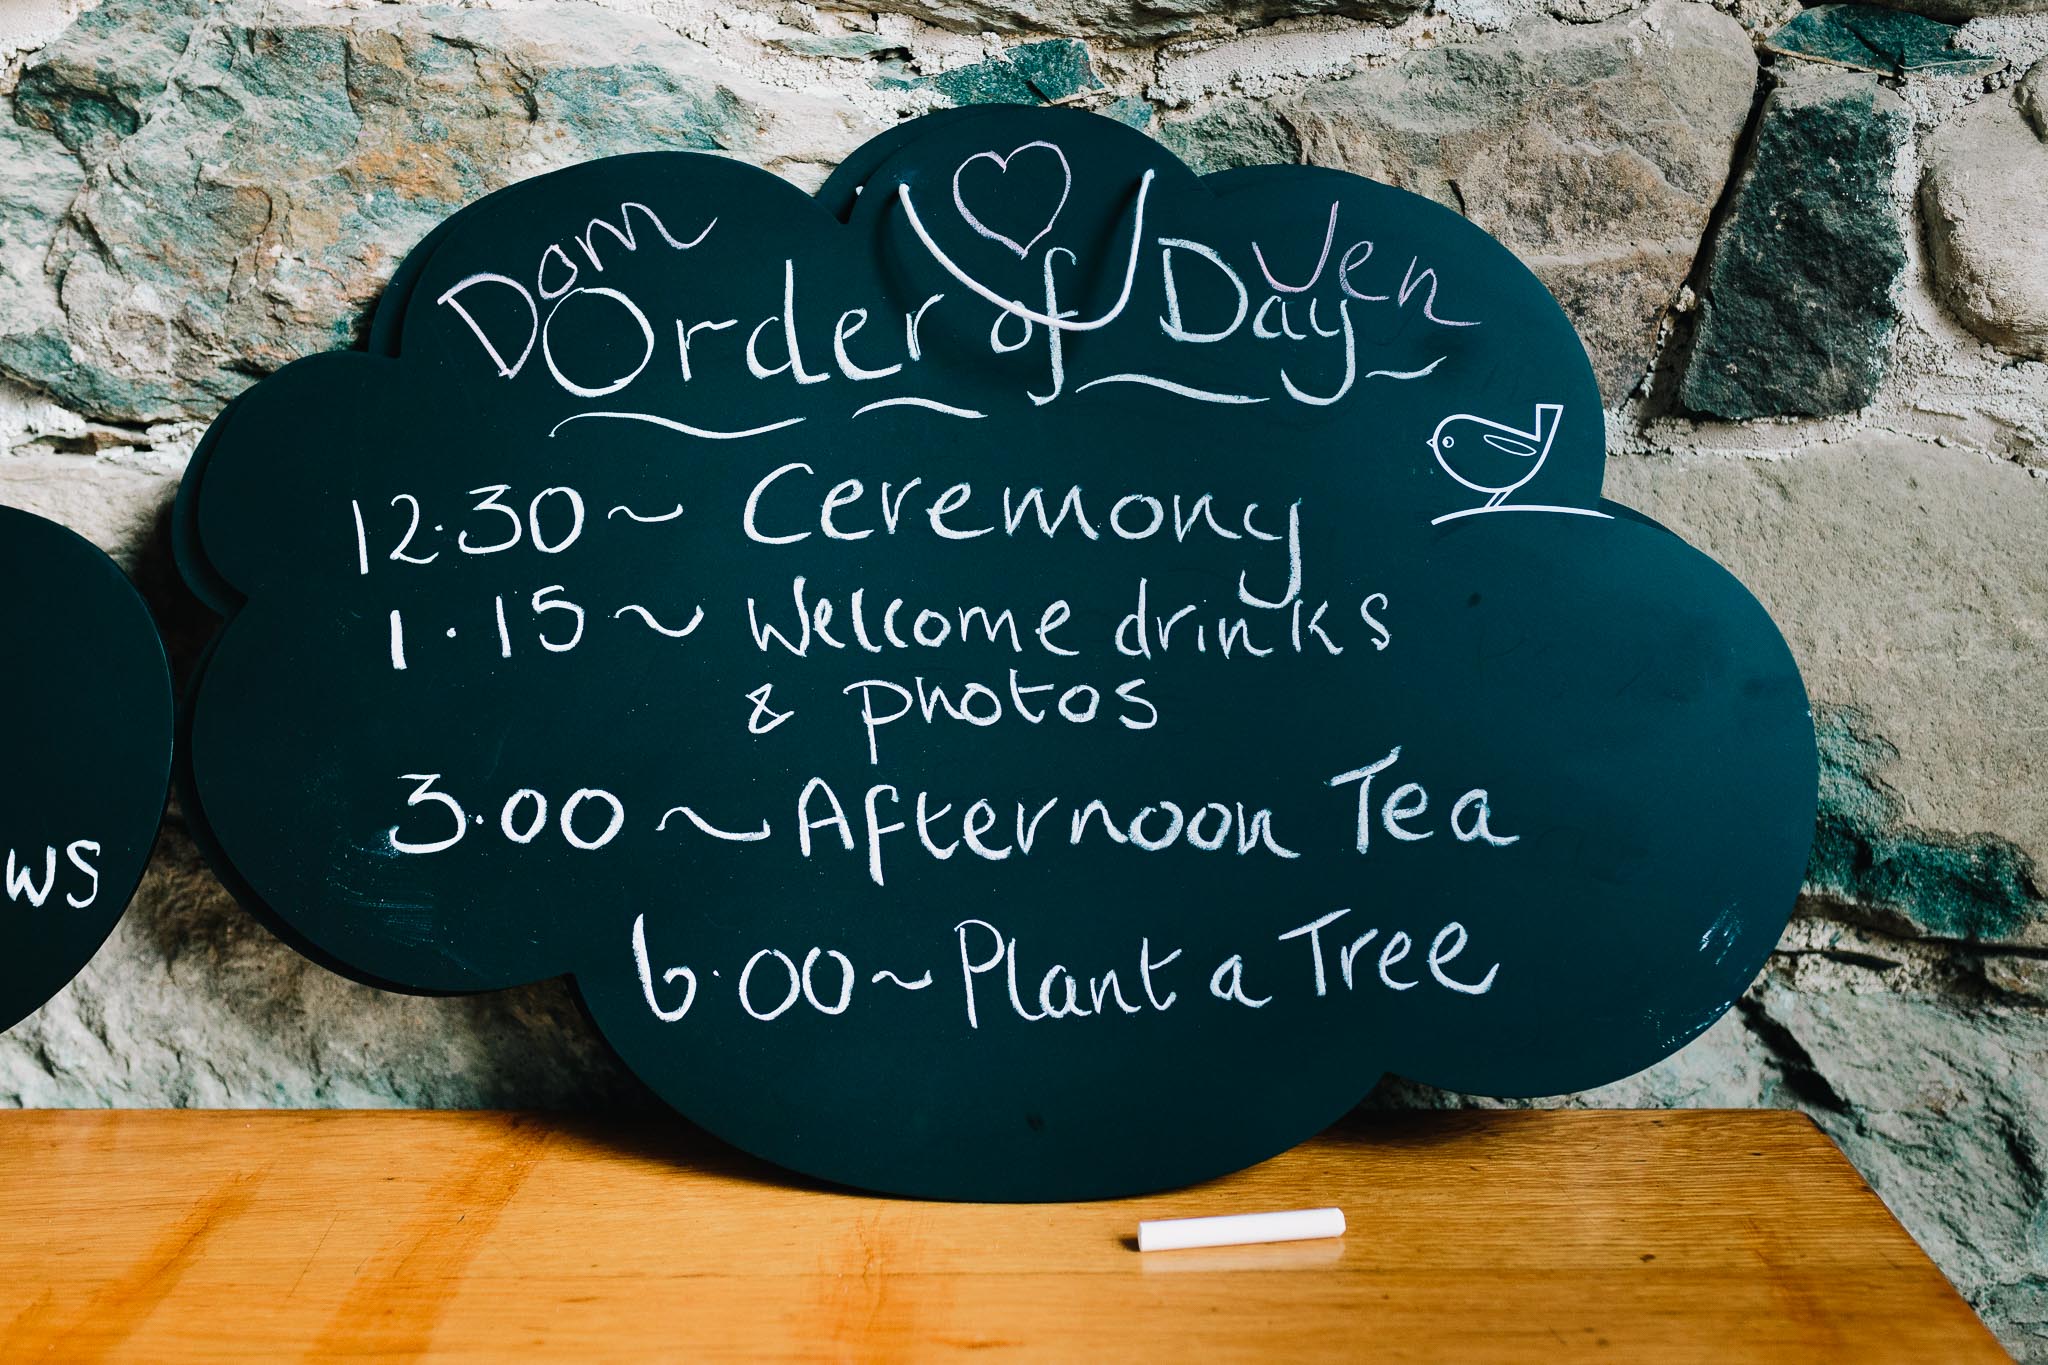 Dom Jen
Order of Day
12.30 ~ Ceremony
1.15 ~ Welcome drinks
& photos
3.00 ~ Afternoon Tea
6.00 ~ Plant a Tree
ws